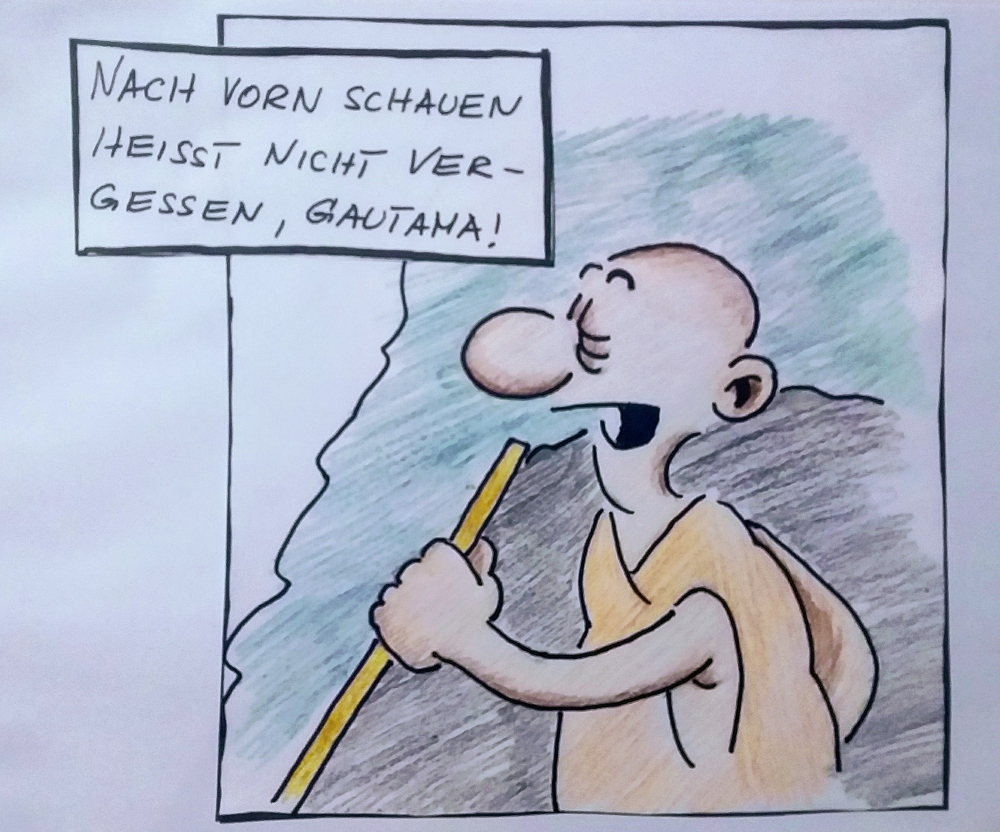 NACH VORN SCHAUEN
HEISST NICHT VER-
GESSEN, GAUTAMA!